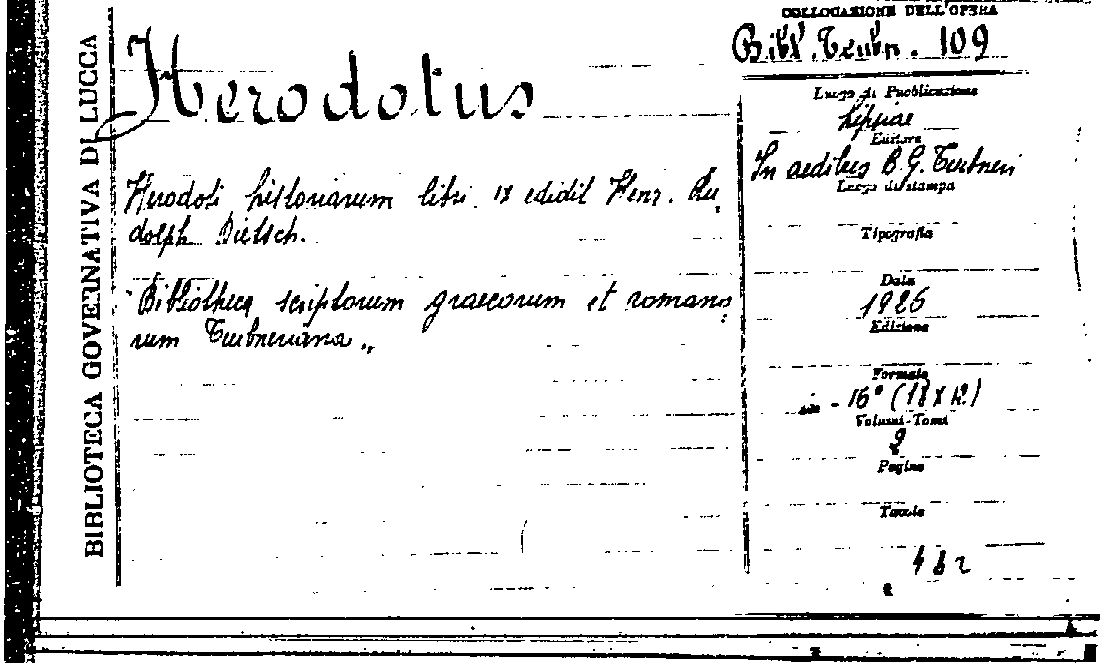 BIBLIOTECA GOVERNATIVA DI LUCCA
Herodotus
Herodoti historiarum libri IX edidit Henr. Ru-
dolph Dietsch.
"Bibliotheca scriptorum graecorum et romano-
rum Teubneriana"
COLLOCAZIONE DELL'OPERA
Bibl. Teubn. 109
Luogo di Pubblicazione
Lipsiae
Editore
In aedibus B. G. Teubneri
Luogo di stampa
Tipografia
Data
1926
Edizione
Formato
in - 16° (18 x 12)
Volumi-Tomi
2
Pagine
Tavole